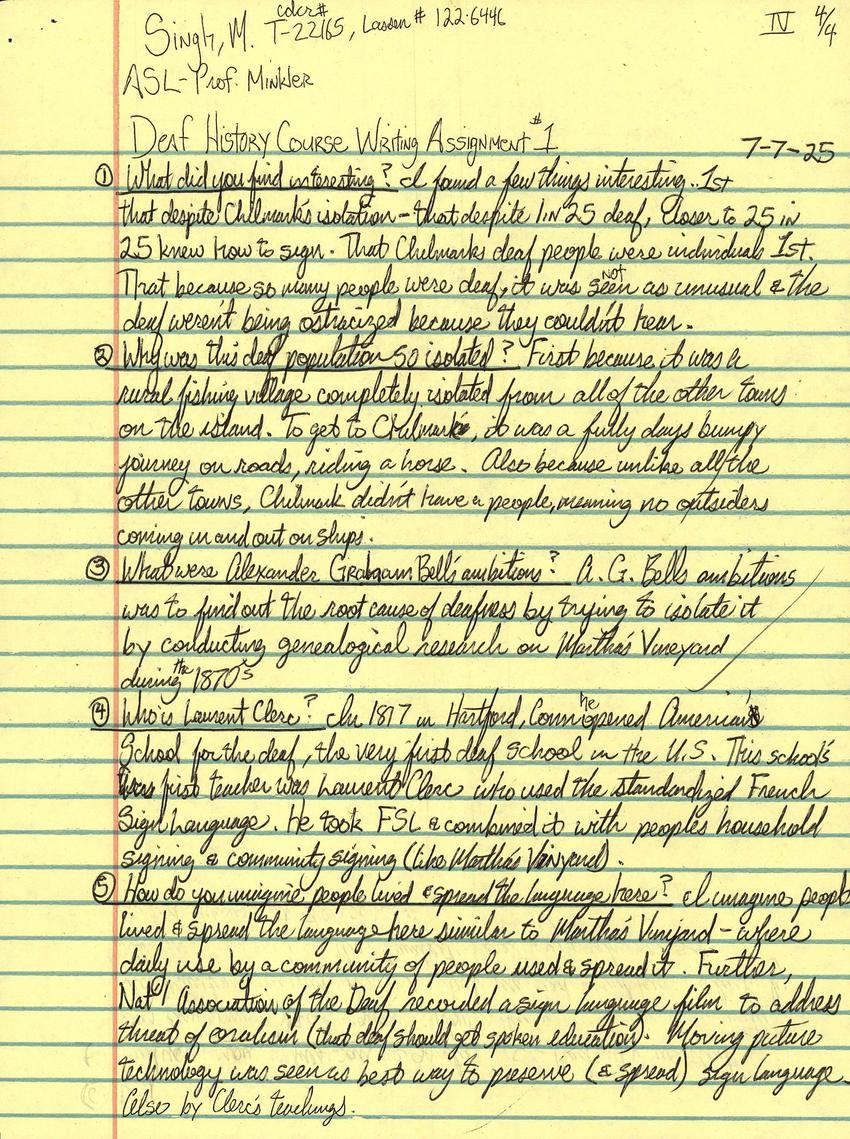 cdcr#
Singh, M. T-22165, Lassen # 122-6446
IV 4/4
ASL-Prof. Minkler
Deaf History Course Writing Assignment #1
7-7-25
① What did you find interesting? I found a few things interesting.. 1st
that despite Chilmark's isolation - that despite 1 in 25 deaf, closer to 25 in
25 knew how to sign. That Chilmarks deaf people were individuals 1st.
That because so many people were deaf, it was not seen as unusual & the
deaf weren't being ostracized because they couldn't hear.
② Why was this deaf population so isolated? First because it was a
rural fishing village completely isolated from all of the other towns
on the island. To get to Chilmark, it was a fully days bumpy
journey on roads, riding a horse. Also because unlike all the
other towns, Chilmark didn't have a people, meaning no outsiders
coming in and out on ships.
③ What were Alexander Grahgam Bell's ambitions? A. G. Bells ambitions
was to find out the root cause of deafness by trying to isolate it
by conducting genealogical research on Martha's Vineyard
during the 1870's
④ Who is Laurent Clerc? In 1817 in Hartford, Conn he opened America's
School for the deaf, the very first deaf school in the U.S. This school's
first teacher was Laurent Clerc who used the standardized French
Sign Language. He took FSL & combined it with peoples household
signing & community signing (like Martha's Vinyard).
⑤ How do you imagine people lived & spread the language here? I imagine people
lived & spread the language here similar to Martha's Vinyard - where
daily use by a community of people used & spread it. Further,
Nat'l Association of the Deaf recorded a sign language film to address
threat of oralism (that deaf should get spoken education). Moving picture
technology was seen as best way to preserve (& spread) sign language.
Also by Clerc's teachings.